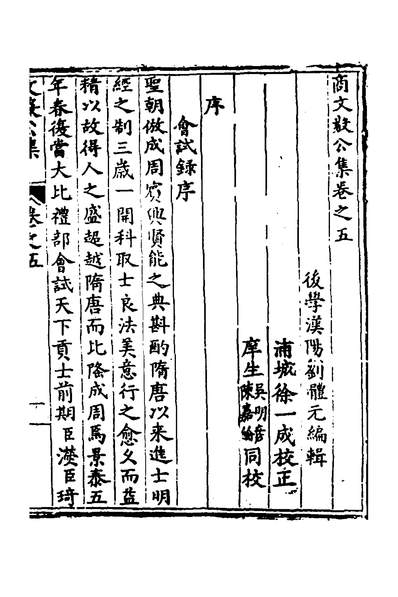 商文毅公集卷之五
後學漢陽劉體元編輯
浦城徐一成校正
庠生吳明彦陳嘉 同校
序
會試録序
聖朝倣成周賓興賢能之典斟酌隋唐以來進士明
經之制三歲一開科取士良法美意行之愈久而益
精以故得人之盛超越隋唐而比隆成周焉景泰五
年春復當大比禮部會試天下貢士前期臣濙臣琦
文毅公集 卷之五 一